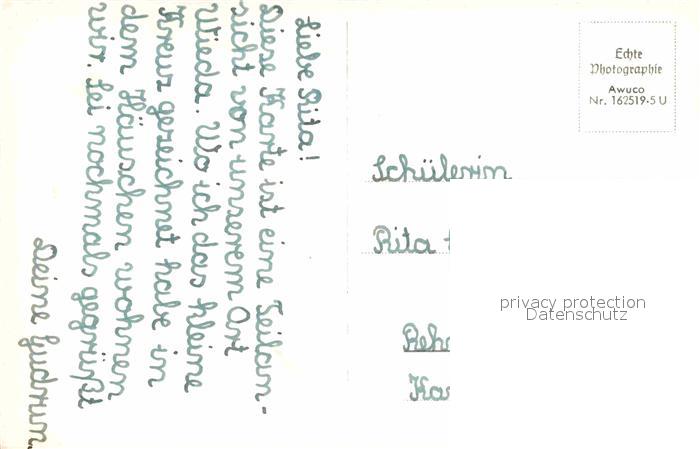 Liebe Rita!
Diese Karte ist eine Teilan-
sicht von unserem Ort
Wieda. Wo ich das kleine
Kreuz gezeichnet habe in
dem Häuschen wohnen
wir. Sei nochmals gegrüßt
Deine Gudrun.
Echte
Photographie
Awuco
Nr. 162519·5 U
Schülerin
Rita
privacy protection
Datenschutz